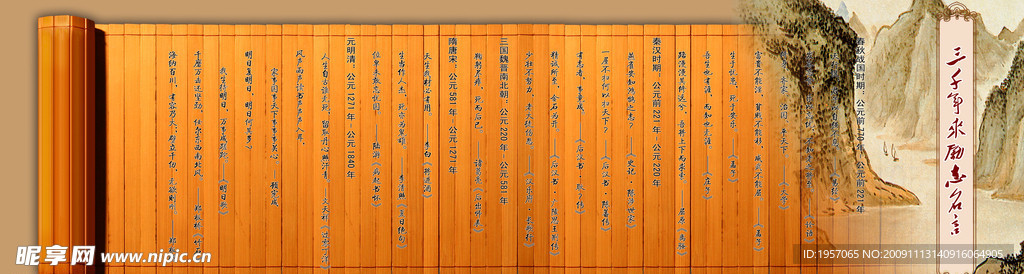 三千年求励志名言
春秋战国时期：公元前770年 公元前221年
富贵不能淫，贫贱不能移，威武不能屈。——《孟子》
生于忧患，死于安乐。——《孟子》
吾生也有涯，而知也无涯。——《庄子》
路漫漫其修远兮，吾将上下而求索。——屈原《离骚》
秦汉时期：公元前221年 公元220年
燕雀安知鸿鹄之志？——《史记·陈涉世家》
一屋不扫何以扫天下？——《后汉书·陈蕃传》
有志者，事竟成。——《后汉书·耿弇传》
精诚所至，金石为开。——《后汉书·广陵思王荆传》
少壮不努力，老大徒伤悲。——《汉乐府·长歌行》
三国魏晋南北朝：公元220年 公元581年
鞠躬尽瘁，死而后已。——诸葛亮《后出师表》
隋唐宋：公元581年 公元1271年
天生我材必有用。——李白《将进酒》
生当作人杰，死亦为鬼雄。——李清照《夏日绝句》
位卑未敢忘忧国。——陆游《病起书怀》
元明清：公元1271年 公元1840年
人生自古谁无死，留取丹心照汗青。——文天祥《过零丁洋》
风声雨声读书声声声入耳，
家事国事天下事事事关心。——顾宪成
明日复明日，明日何其多？
我生待明日，万事成蹉跎。——《明日歌》
千磨万击还坚劲，任尔东西南北风。——郑板桥《竹石》
海纳百川，有容乃大；壁立千仞，无欲则刚。
昵享网 www.nipic.cn
ID:1957065 NO:20091113140916064905